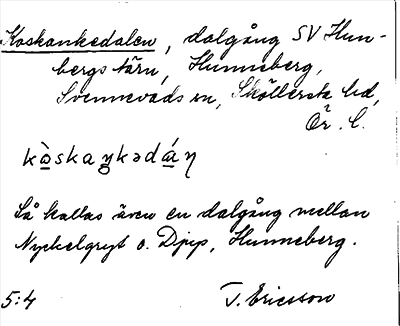 Koskankedalen, dalgång SV Hun-
bergs tärn, Hunneberg,
Svennevads sn, Sköllersta hd,
Ör. l.
kòskaŋkədáŋ
Så kallas även en dalgång mellan
Nyckelgryt o. Djup, Hunneberg.
5:4 T. Ericsson